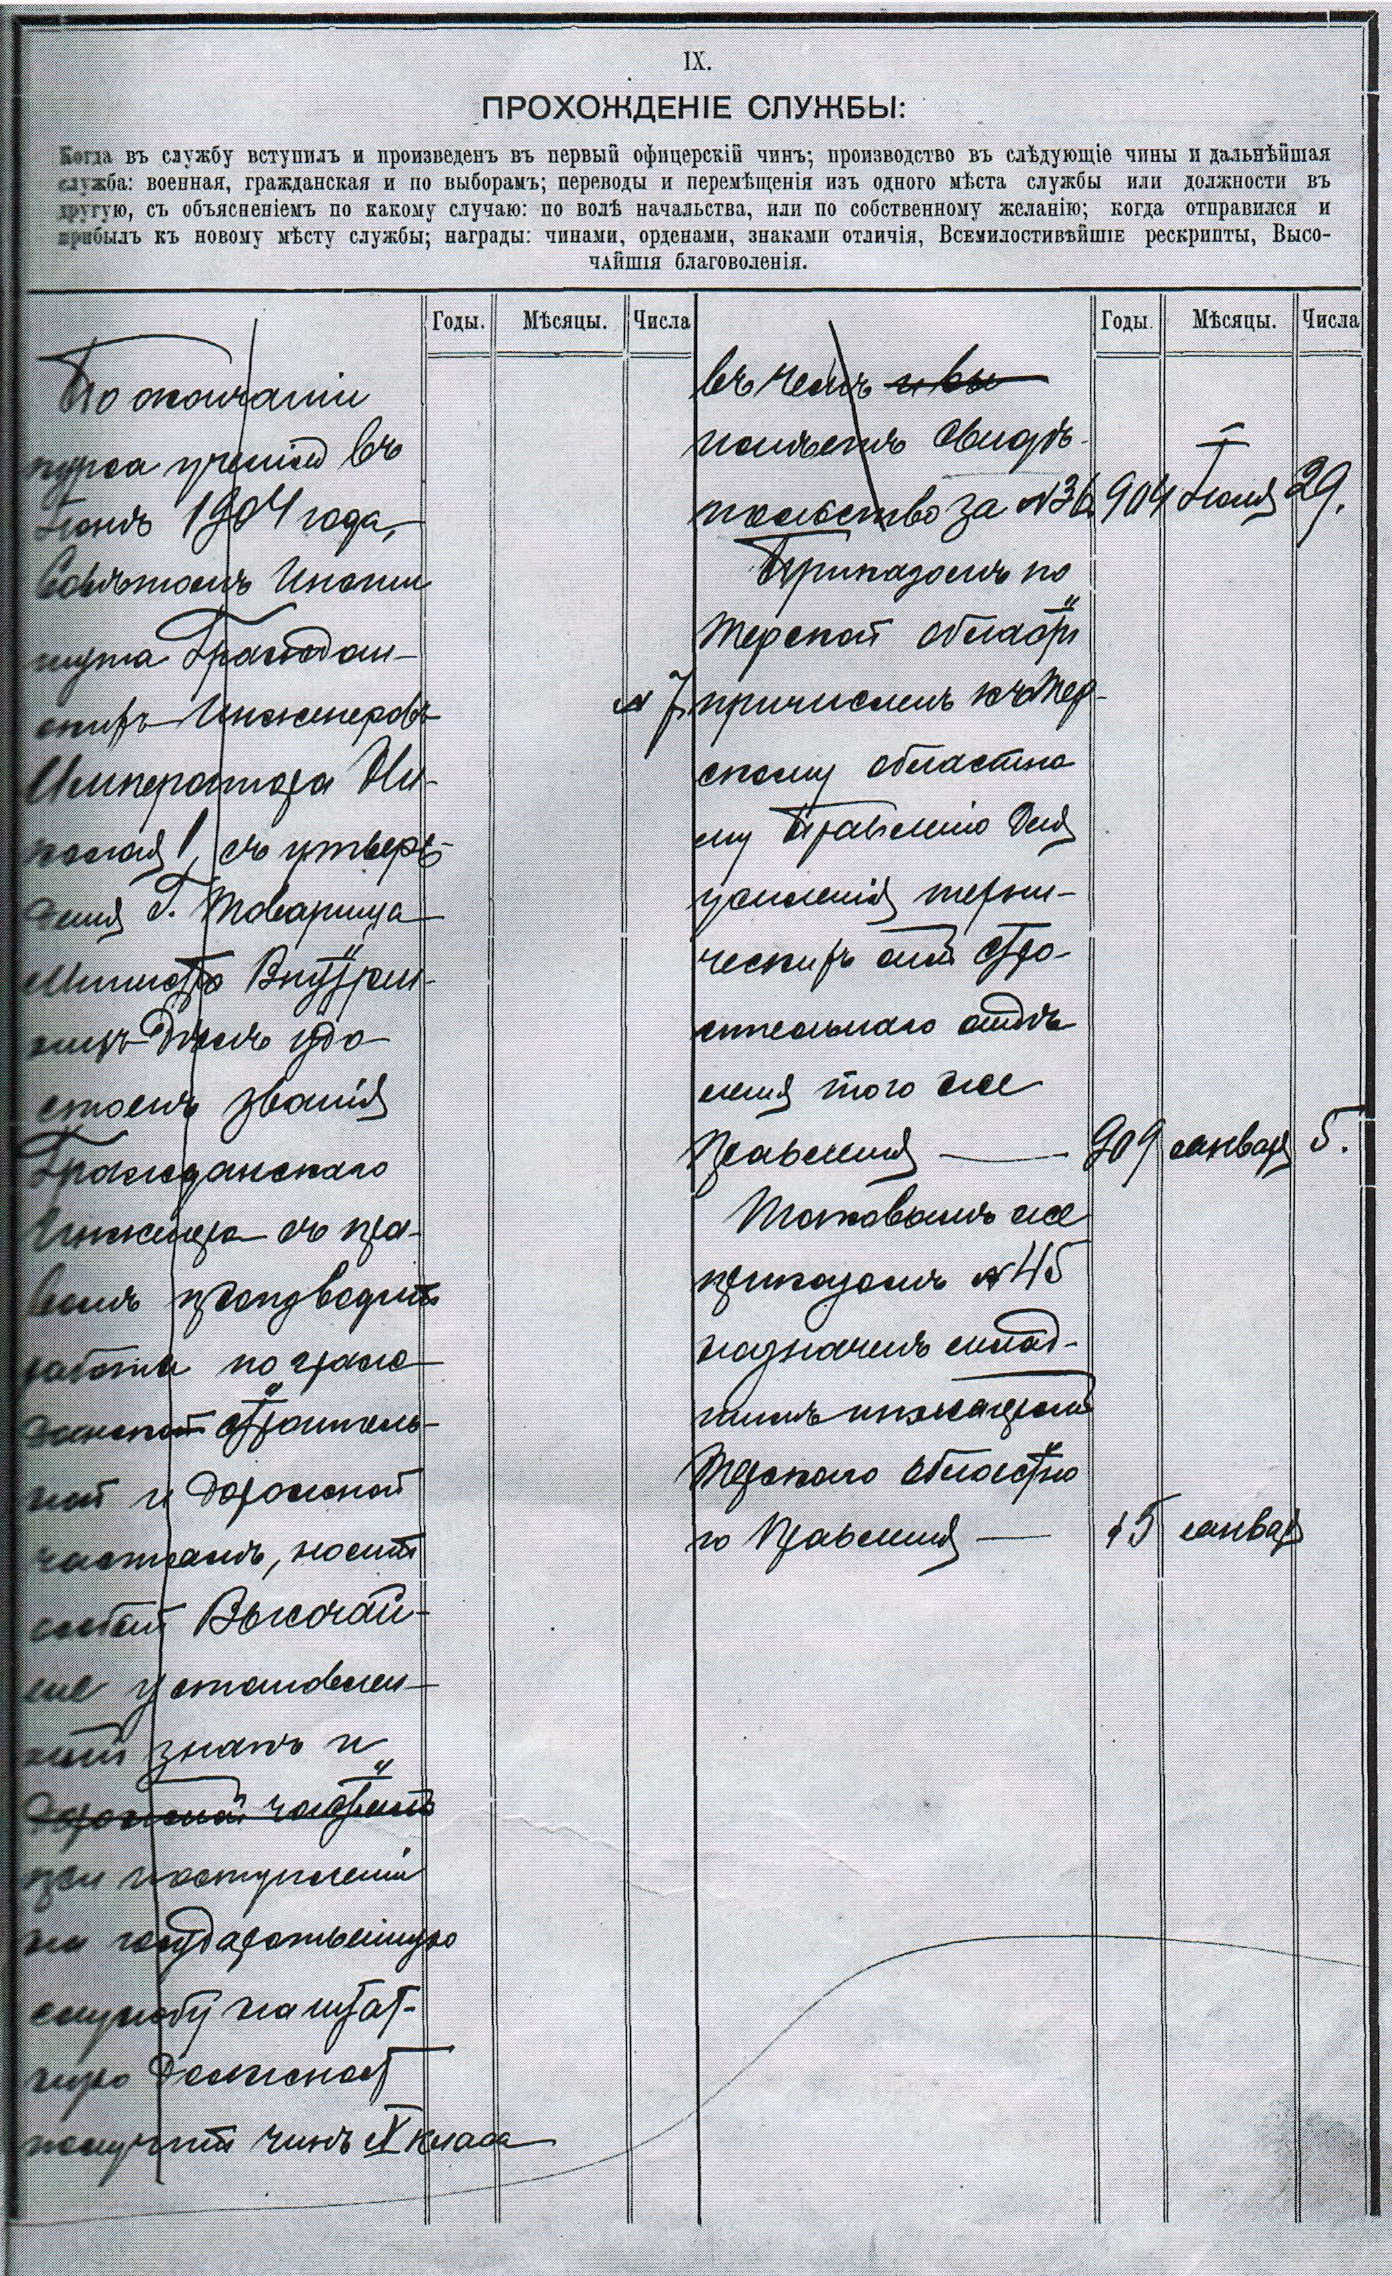 IX.
ПРОХОЖДЕНІЕ СЛУЖБЫ:
Когда въ службу вступилъ и произведенъ въ первый офицерскій чинъ; производство въ слѣдующіе чины и дальнѣйшая
служба: военная, гражданская и по выборамъ; переводы и перемѣщенія изъ одного мѣста службы или должности въ
другую, съ объясненіемъ по какому случаю: по волѣ начальства, или по собственному желанію; когда отправился и
прибылъ къ новому мѣсту службы; награды: чинами, орденами, знаками отличія, Всемилостивѣйшіе рескрипты, Высо-
чайшія благоволенія.
Годы. Мѣсяцы. Числа
По окончаніи
курса ученія въ
Іюнѣ 1904 года,
Совѣтомъ Инсти
тута Граждан-
скихъ Инженеровъ
Императора Ни-
колая I, съ утверж-
денія Г. Товарища
Министра Внутрен-
нихъ Дѣлъ удо-
стоенъ званія
Гражданскаго
Инженера съ пра-
вомъ производить
работы по граж-
данской строитель-
ной и дорожной
частямъ, носить
особый Высочай-
ше установлен-
ный знакъ и
дорожной частямъ
при поступленіи
на государственную
службу на штат-
ную должность
получить чинъ X класса
Годы. Мѣсяцы. Числа
въ чемъ и вы
полѣенъ свидѣ-
тельство за №36 904 Іюля 29.
Приказомъ по
Терской области
№ 7 причисленъ къ Тер-
скому областно
му Правленію для
усиленія техни-
ческихъ силъ стро-
ительнаго отдѣ
ленія того же
Правленія — 909 января 5.
Таковымъ же
приказомъ №45
назначенъ млад-
шимъ инженеромъ
Терскаго областно
го Правленія — 15 января